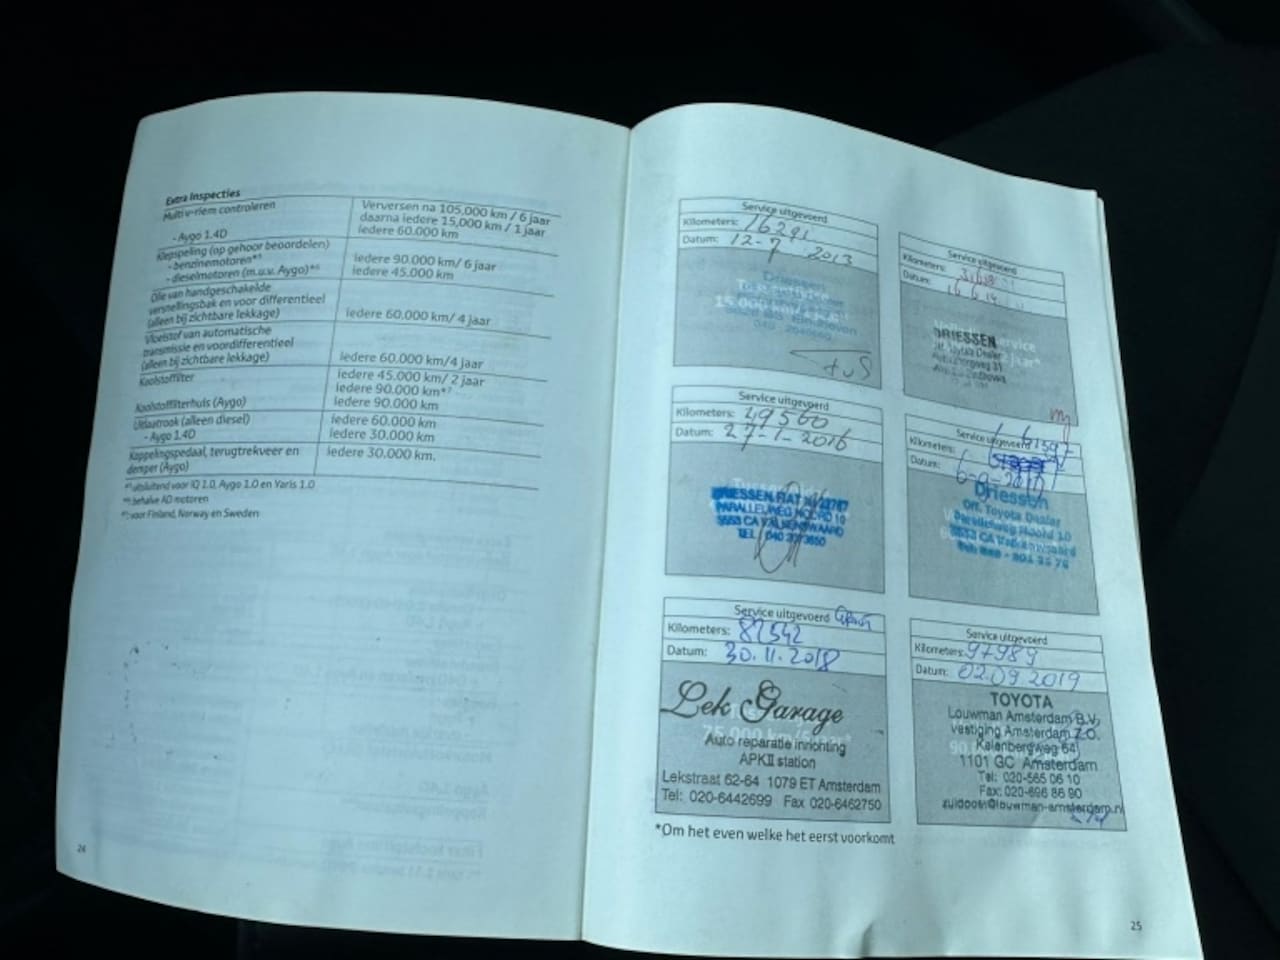 Extra Inspecties
Multi v-riem controleren
Verversen na 105.000 km / 6 jaar
daarna iedere 15,000 km / 1 jaar
- Aygo 1.4D
iedere 60.000 km
Klepspeling (op gehoor beoordelen)
- benzinemotoren*⁵
iedere 90.000 km/ 6 jaar
- dieselmotoren (m.u.v. Aygo)*⁶
iedere 45.000 km
Olie van handgeschakelde
versnellingsbak en voor differentieel
(alleen bij zichtbare lekkage)
iedere 60.000 km/ 4 jaar
Vloeistof van automatische
transmissie en voordifferentieel
(alleen bij zichtbare lekkage)
iedere 60.000 km/4 jaar
Koolstoffilter
iedere 45.000 km/ 2 jaar
iedere 90.000 km*⁷
Koolstoffilterhuis (Aygo)
iedere 90.000 km
Uitlaatrook (alleen diesel)
iedere 60.000 km
- Aygo 1.4D
iedere 30.000 km
Koppelingspedaal, terugtrekveer en
demper (Aygo)
iedere 30.000 km.
uitsluitend voor IQ 1.0, Aygo 1.0 en Yaris 1.0
behalve AD motoren
voor Finland, Norway en Sweden
24
Service uitgevoerd
Kilometers: 16291
Datum: 12-7 2013
15.000 km/1 jaar*
Service uitgevoerd
Kilometers:
Datum:
DRIESSEN
Toyota Dealer
Service uitgevoerd
Kilometers: 49560
Datum: 27-1-2016
DRIESSEN FIAT
PARALLELWEG NOORD 10
5553 CA VALKENSWAARD
TEL. 040
Service uitgevoerd
Kilometers:
Datum:
Driessen
Off. Toyota Dealer
Parallelweg Noord 10
5553 CA Valkenswaard
Service uitgevoerd
Kilometers: 82542
Datum: 30.11.2018
Lek Garage
75.000 km/5 jaar*
Auto reparatie inrichting
APKII station
Lekstraat 62-64 1079 ET Amsterdam
Tel: 020-6442699 Fax 020-6462750
Service uitgevoerd
Kilometers: 97989
Datum: 02.09.2019
TOYOTA
Louwman Amsterdam B.V.
vestiging Amsterdam Z.O.
Kelenbergweg 64
1101 GC Amsterdam
Tel: 020-565 06 10
Fax: 020-696 86 90
zuidoost@louwman-amsterdam.nl
*Om het even welke het eerst voorkomt
25